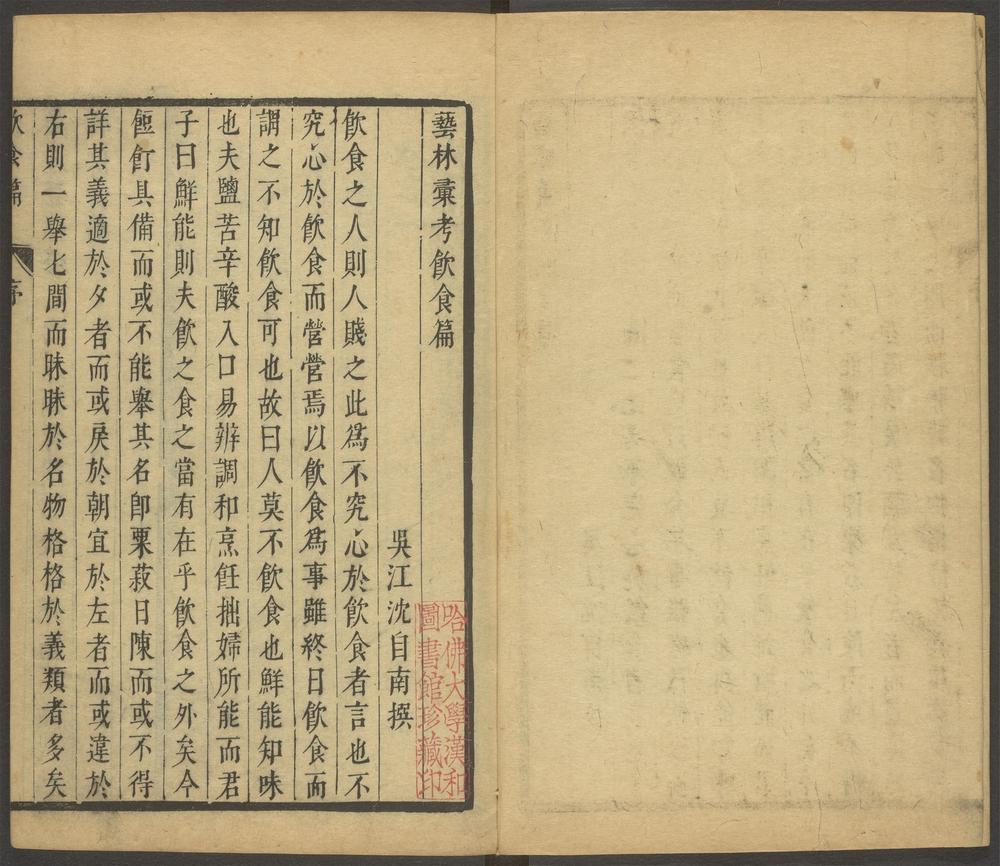 藝林彙考飲食篇
吳江沈自南撰
飲食之人則人賤之此為不究心於飲食者言也不
究心於飲食而營營焉以飲食為事雖終日飲食而
謂之不知飲食可也故曰人莫不飲食也鮮能知味
也夫鹽苦辛酸入口易辨調和烹飪拙婦所能而君
子曰鮮能則夫飲之食之當有在乎飲食之外矣今
餖飣具備而或不能舉其名卽栗菽日陳而或不得
詳其義適於夕者而或戾於朝宜於左者而或違於
右則一舉匕間而昧昧於名物格格於義類者多矣
飲食篇
序
哈佛大學漢和
圖書館珍藏印